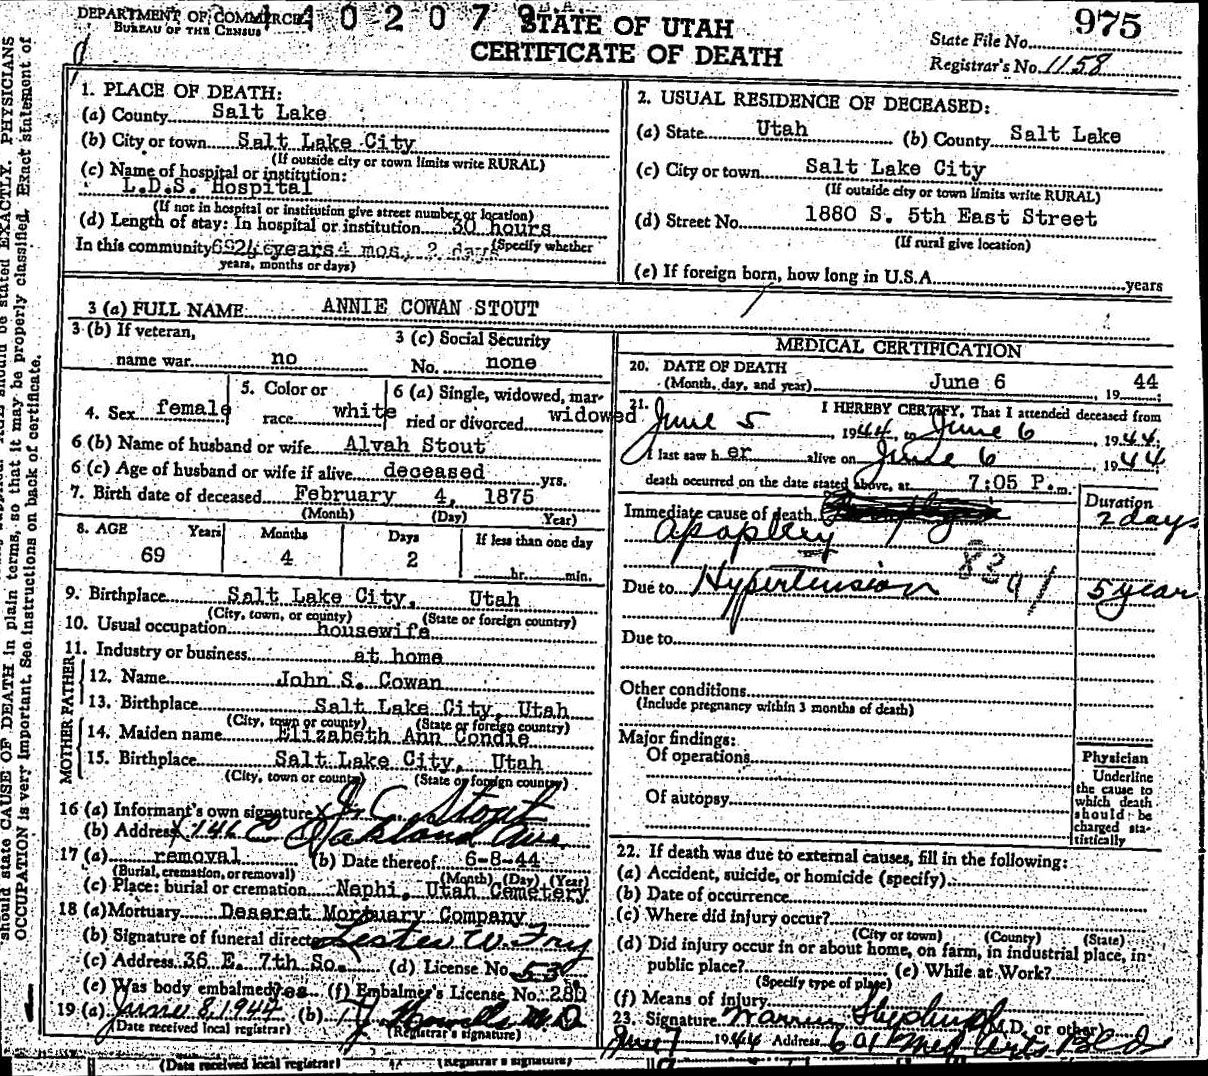 DEPARTMENT OF COMMERCE
BUREAU OF THE CENSUS
STATE OF UTAH
CERTIFICATE OF DEATH
975
State File No.
Registrar's No. 1158
1. PLACE OF DEATH:
(a) County Salt Lake
(b) City or town Salt Lake City
(If outside city or town limits write RURAL)
(c) Name of hospital or institution:
L.D.S. Hospital
(If not in hospital or institution give street number or location)
(d) Length of stay: In hospital or institution 30 hours
In this community years 4 mos. 2 days (Specify whether
years, months or days)
2. USUAL RESIDENCE OF DECEASED:
(a) State Utah (b) County Salt Lake
(c) City or town Salt Lake City
(If outside city or town limits write RURAL)
(d) Street No. 1880 S. 5th East Street
(If rural give location)
(e) If foreign born, how long in U.S.A. years
3 (a) FULL NAME ANNIE COWAN STOUT
3 (b) If veteran,
name war no
3 (c) Social Security
No. none
4. Sex female
5. Color or
race white
6 (a) Single, widowed, mar-
ried or divorced widowed
6 (b) Name of husband or wife Alvah Stout
6 (c) Age of husband or wife if alive deceased yrs.
7. Birth date of deceased February 4, 1875
(Month) (Day) Year)
8. AGE Years Months Days If less than one day
69 4 2 hr. min.
9. Birthplace Salt Lake City, Utah
(City, town, or county) (State or foreign country)
10. Usual occupation housewife
11. Industry or business at home
FATHER
12. Name John S. Cowan
13. Birthplace Salt Lake City, Utah
(City, town or county) (State or foreign country)
MOTHER
14. Maiden name Elizabeth Ann Condie
15. Birthplace Salt Lake City, Utah
(City, town or county) (State or foreign country)
16 (a) Informant's own signature X J. C. Stout
(b) Address X 146 E Oakland Ave.
17 (a) removal (b) Date thereof 6-8-44
(Burial, cremation, or removal) (Month) (Day) (Year)
(c) Place: burial or cremation Nephi, Utah Cemetery
18 (a) Mortuary Deseret Mortuary Company
(b) Signature of funeral director Lester W. Fry
(c) Address 36 E. 7th So. (d) License No. 530
(e) Was body embalmed? Yes (f) Embalmer's License No.
19 (a) June 8, 1944 (b) M.D.
(Date received local registrar) (Registrar's signature)
MEDICAL CERTIFICATION
20. DATE OF DEATH
(Month, day, and year) June 6, 1944
21. I HEREBY CERTIFY, That I attended deceased from
June 5, 1944, to June 6, 1944,
I last saw her alive on June 6, 1944
death occurred on the date stated above, at 7:05 P.m.
Duration
Immediate cause of death
apoplexy 2 days
Due to Hypertension 5 year
Due to
Other conditions
(Include pregnancy within 3 months of death)
Major findings:
Of operations
Of autopsy
Physician
Underline
the cause to
which death
should be
charged sta-
tistically
22. If death was due to external causes, fill in the following:
(a) Accident, suicide, or homicide (specify)
(b) Date of occurrence
(c) Where did injury occur?
(City or town) (County) (State)
(d) Did injury occur in or about home, on farm, in industrial place, in
public place? (e) While at Work?
(Specify type of place)
(f) Means of injury
23. Signature Warren (M.D. or other)
June 7 1944 Address 601 Med Arts Bldg
(Date received local registrar) (Registrar's signature)
should state CAUSE OF DEATH in plain terms, so that it may be properly classified. Exact statement of
OCCUPATION is very important. See instructions on back of certificate.